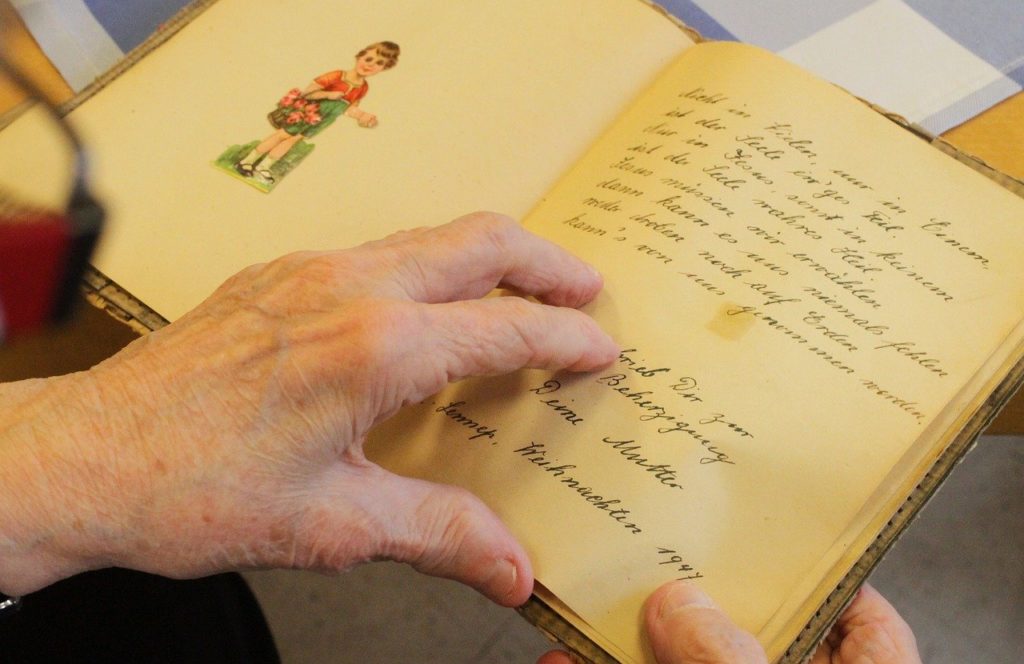 Nicht in Vielen, nur in Einem,
ist der Seele ein'ges Teil.
Nur in Jesus, sonst in keinem
ist der Seele wahres Heil.
Jesus müssen wir erwählen
dann kann es uns niemals fehlen
weder droben noch auf Erden
kann's von uns genommen werden.
rieb Dir zur
Beherzigung
Deine Mutter
Lennep, Weihnachten 1947